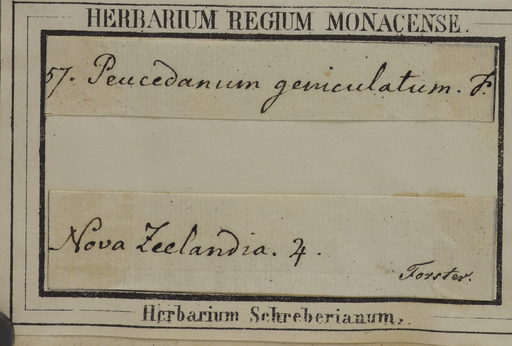 HERBARIUM REGIUM MONACENSE.
57. Peucedanum geniculatum. F.
Nova Zeelandia. 4.
Forster.
Herbarium Schreberianum.